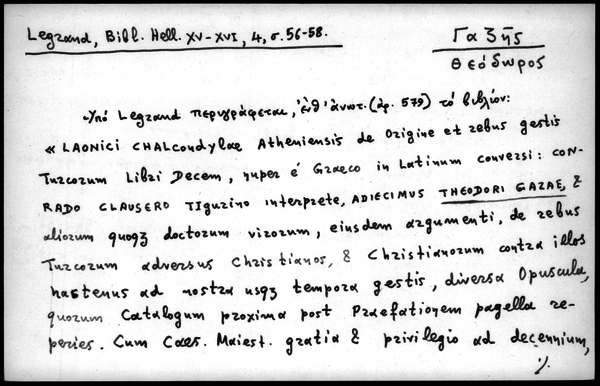 Legrand, Bibl. Hell. XV-XVI, 4, σ. 56-58.
Γαζῆς
Θεόδωρος
Ὑπό Legrand περιγράφεται, ἔνθ' ἀνωτ. (ἀρ. 579) τό βιβλίον:
« LAONICI CHALCOndylae Atheniensis de Origine et rebus gestis
Turcorum Libri Decem, nuper é Graeco in Latinum conversi: CON-
RADO CLAUSERO Tigurino interprete, ADIECIMUS THEODORI GAZAE, &
aliorum quoqȝ doctorum virorum, eiusdem argumenti, de rebus
Turcorum adversus Christianos, & Christianorum contra illos
hactenus ad nostra usqȝ tempora gestis, diversa Opuscula,
quorum Catalogum proxima post Praefationem pagella re-
peries. Cum Caes. Maiest. gratia & privilegio ad decennium,
./.